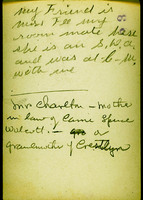 my Friend is
miss Fee my
room mate
she is an S.W.A.
and was at C-M.
with me
8
Mr Charlton - mother
in law of Came Spence
Walcott. - a
grandmother of Crestlyn